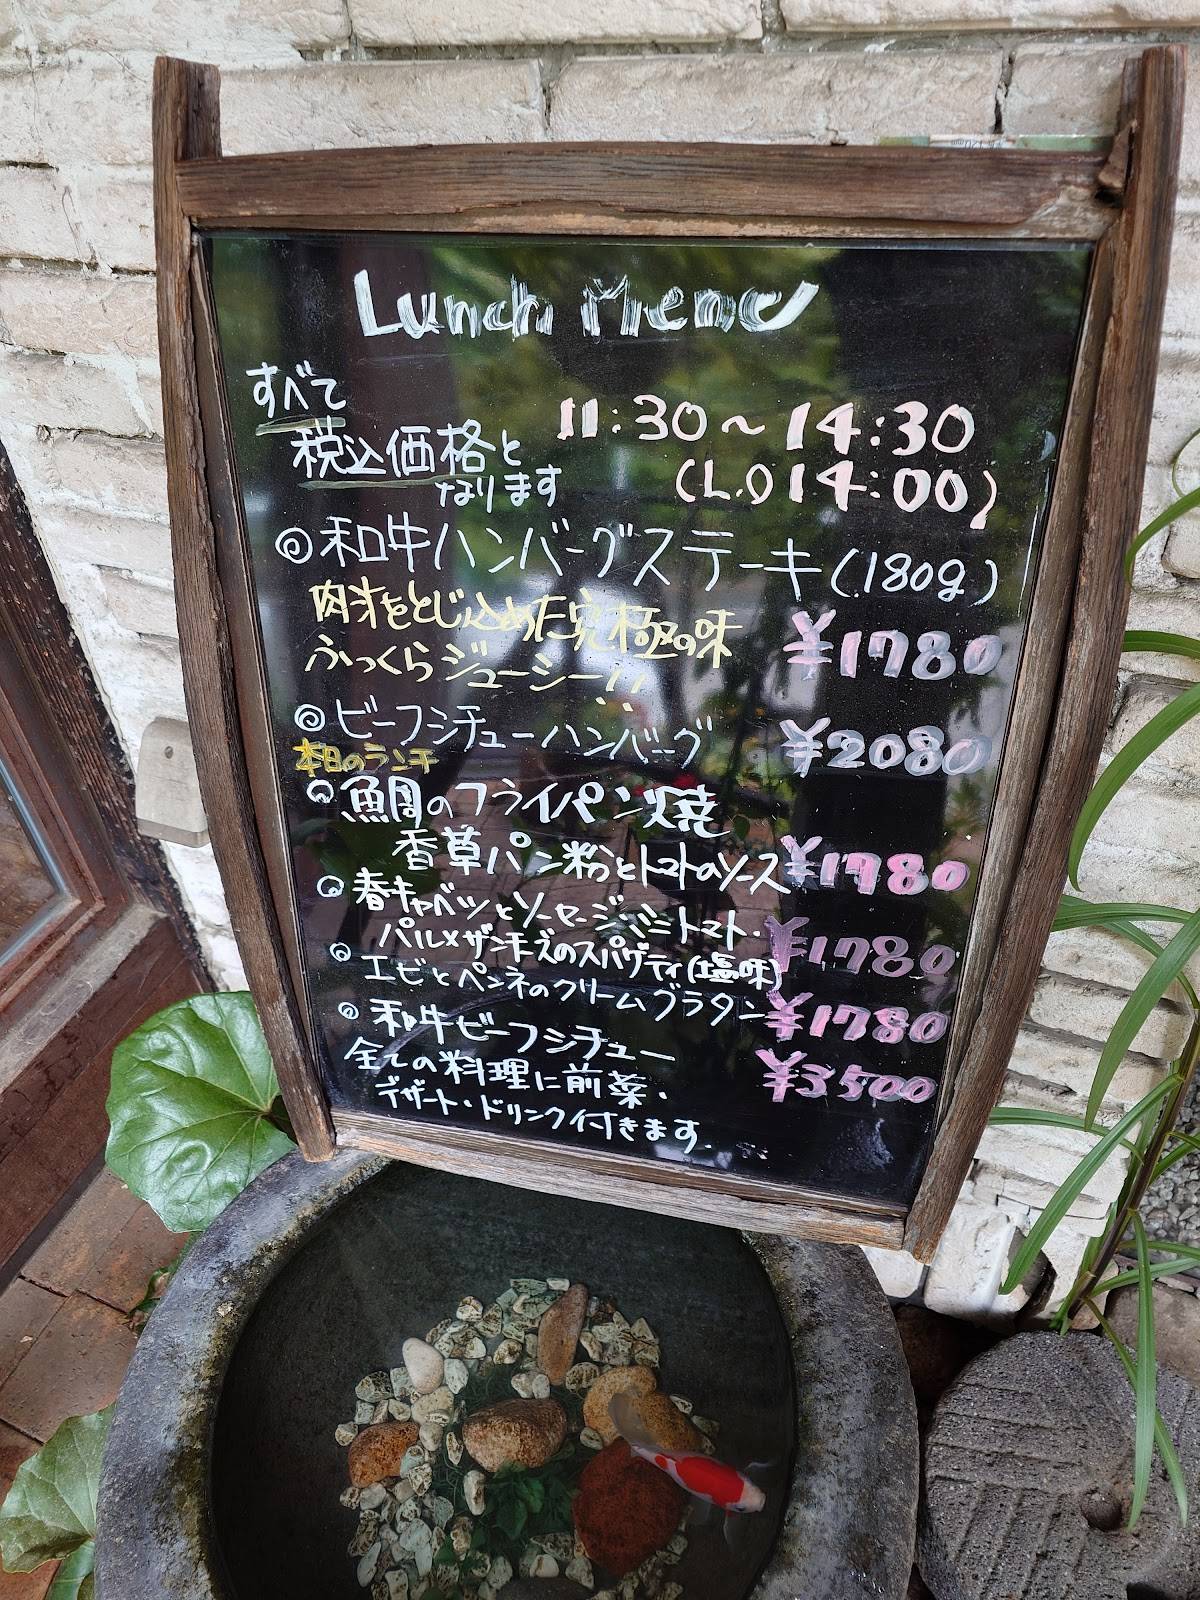 Lunch Menu
すべて
税込価格と
なります
11:30～14:30
(L.O 14:00)
◎和牛ハンバーグステーキ(180g)
肉汁をとじ込めた究極の味
ふっくらジューシー!!
¥1780
◎ビーフシチューハンバーグ ¥2080
本日のランチ
◎鯛のフライパン焼
香草パン粉とトマトのソース ¥1780
◎春キャベツとソーセージ・ミニトマト・
パルメザンチーズのスパゲティ(塩味) ¥1780
◎エビとペンネのクリームグラタン ¥1780
◎和牛ビーフシチュー ¥3500
全ての料理に前菜・
デザート・ドリンク付きます.